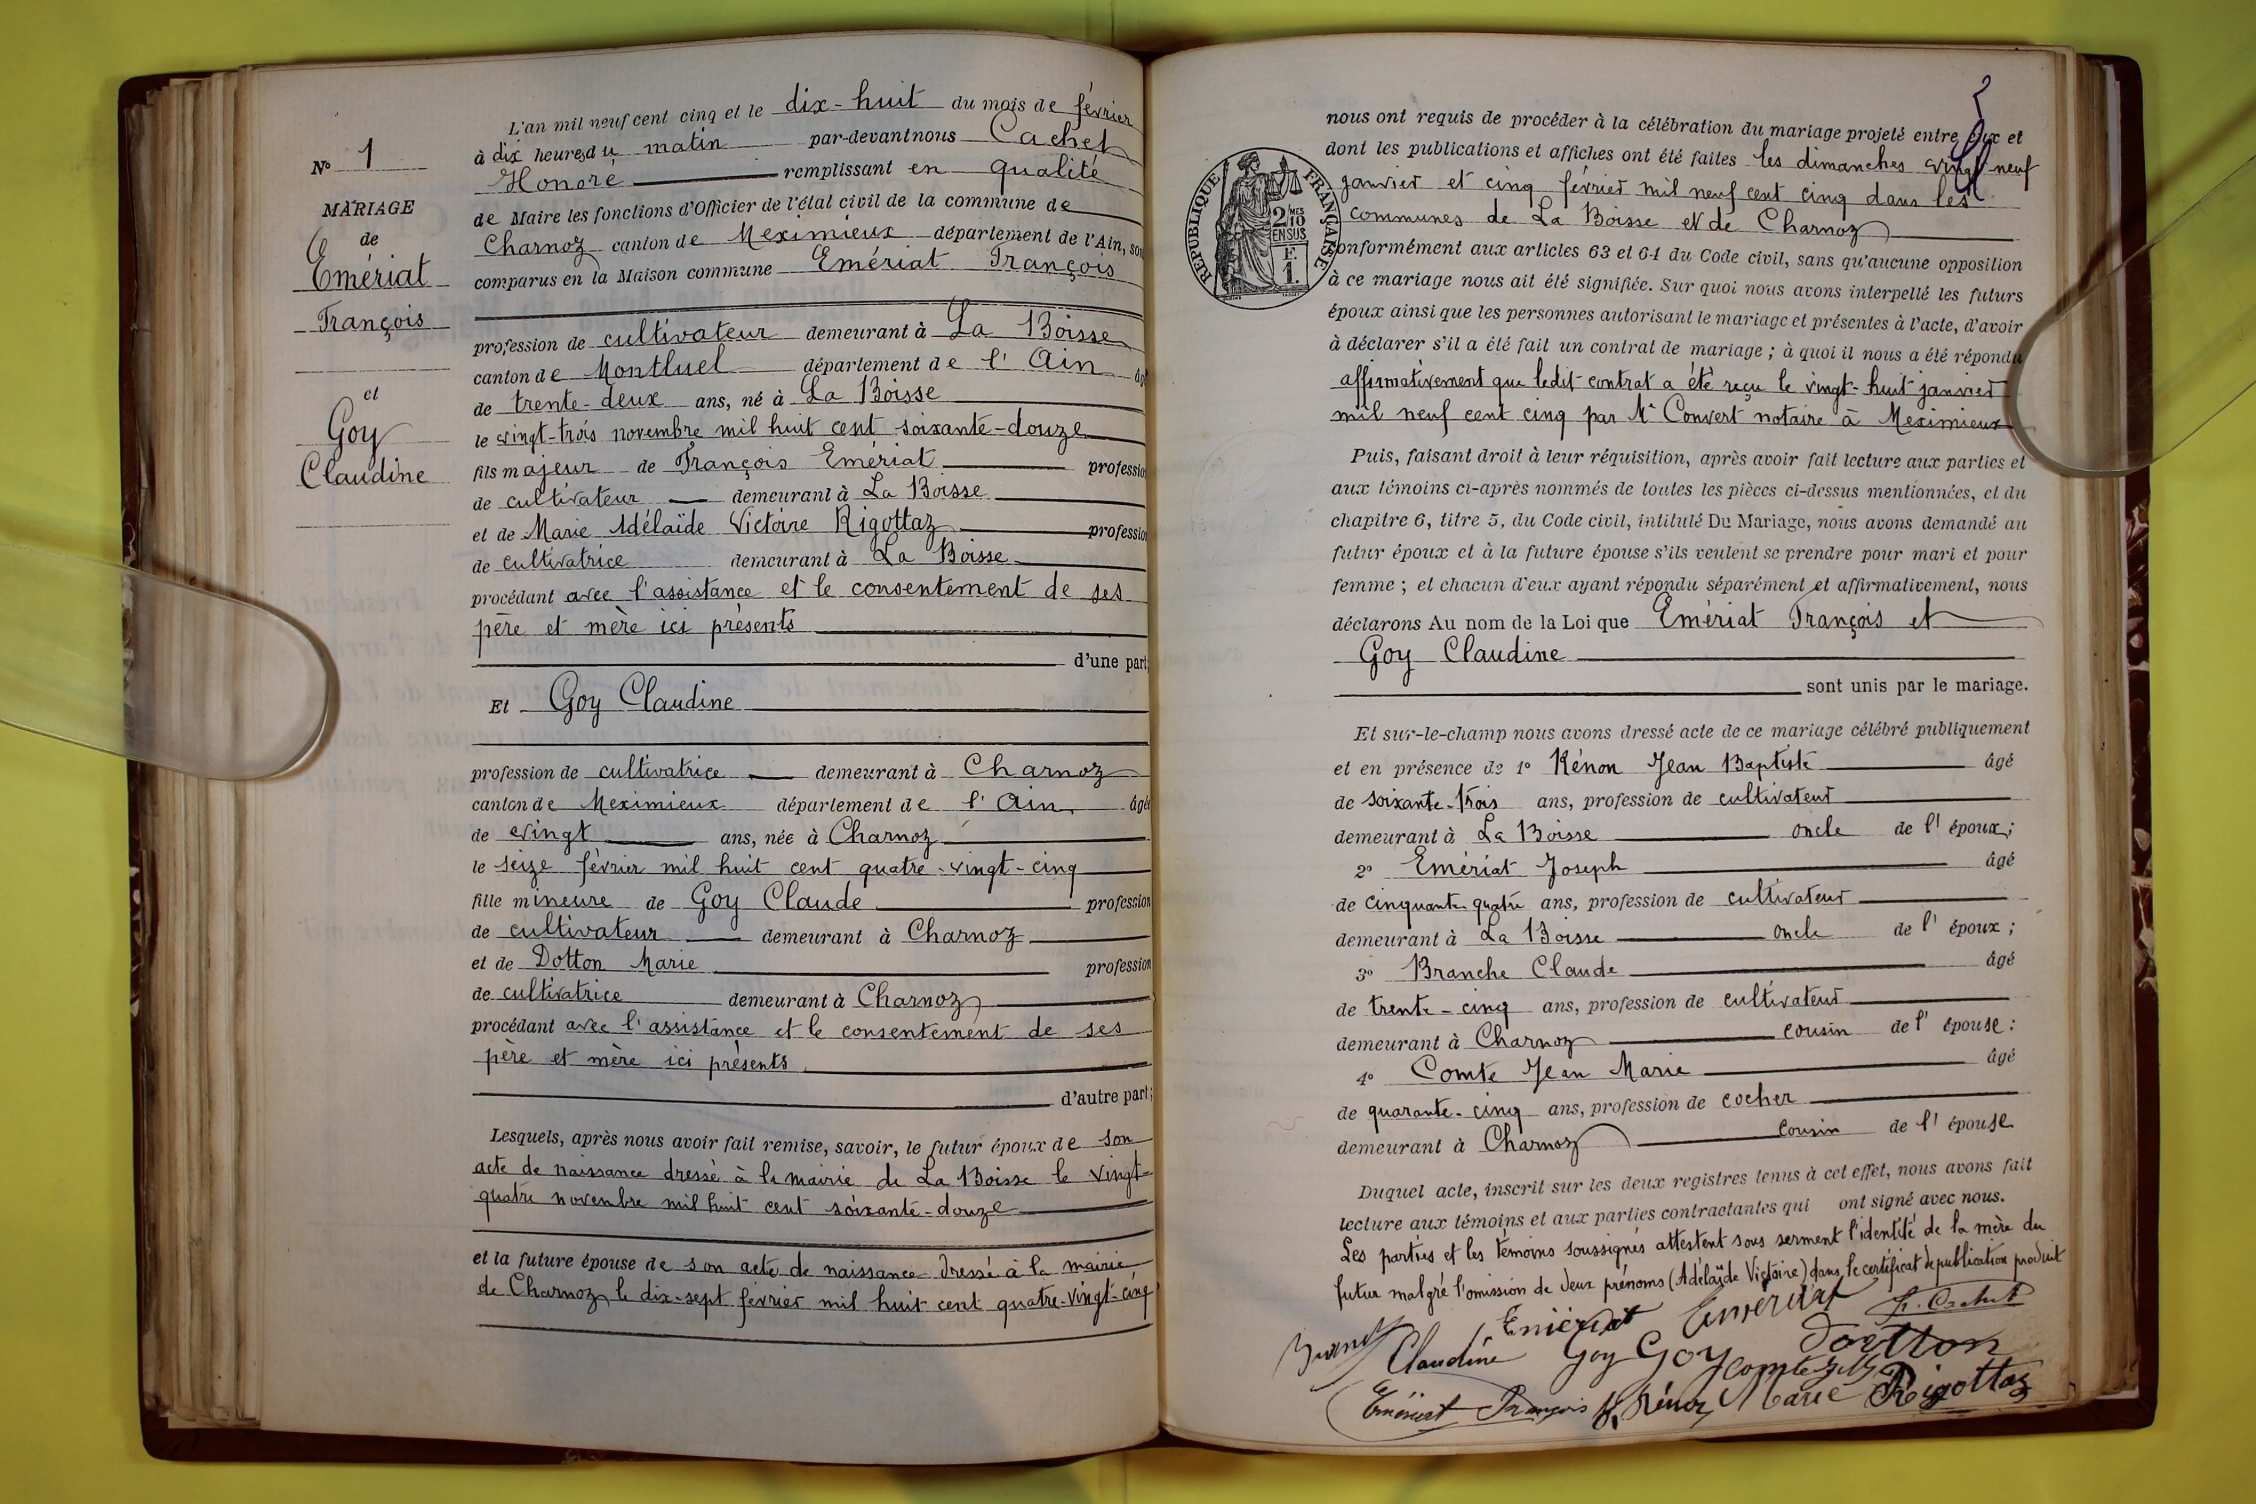 N° 1
MARIAGE
de
Emériat
François
et
Goy
Claudine
L'an mil neuf cent cinq et le dix-huit du mois de février
à dix heures du matin par-devant nous Cachet
Honoré remplissant en qualité
de Maire les fonctions d'Officier de l'état civil de la commune de
Charnoz canton de Meximieux département de l'Ain, son
comparus en la Maison commune Emériat François
profession de cultivateur demeurant à La Boisse
canton de Montluel département de l'Ain âgé
de trente-deux ans, né à La Boisse
le vingt-trois novembre mil huit cent soixante-douze
fils majeur de François Emériat profession
de cultivateur demeurant à La Boisse
et de Marie Adélaïde Victoire Rigottaz profession
de cultivatrice demeurant à La Boisse
procédant avec l'assistance et le consentement de ses
père et mère ici présents
d'une part;
Et Goy Claudine
profession de cultivatrice demeurant à Charnoz
canton de Meximieux département de l'Ain, âgée
de vingt ans, née à Charnoz
le seize février mil huit cent quatre-vingt-cinq
fille mineure de Goy Claude profession
de cultivateur demeurant à Charnoz
et de Dotton Marie profession
de cultivatrice demeurant à Charnoz
procédant avec l'assistance et le consentement de ses
père et mère ici présents
d'autre part;
Lesquels, après nous avoir fait remise, savoir, le futur époux de son
acte de naissance dressé à la mairie de La Boisse le vingt-
quatre novembre mil huit cent soixante-douze
et la future épouse de son acte de naissance dressé à la mairie
de Charnoz le dix-sept février mil huit cent quatre-vingt-cinq
nous ont requis de procéder à la célébration du mariage projeté entre eux et
dont les publications et affiches ont été faites les dimanches vingt neuf
janvier et cinq février mil neuf cent cinq dans les
communes de La Boisse et de Charnoz
conformément aux articles 63 et 64 du Code civil, sans qu'aucune opposition
à ce mariage nous ait été signifiée. Sur quoi nous avons interpellé les futurs
époux ainsi que les personnes autorisant le mariage et présentes à l'acte, d'avoir
à déclarer s'il a été fait un contrat de mariage ; à quoi il nous a été répondu
affirmativement que ledit contrat a été reçu le vingt-huit janvier
mil neuf cent cinq par Me Convert notaire à Meximieux
RÉPUBLIQUE FRANÇAISE
2/10MES
EN SUS
F.
1.
Puis, faisant droit à leur réquisition, après avoir fait lecture aux parties et
aux témoins ci-après nommés de toutes les pièces ci-dessus mentionnées, et du
chapitre 6, titre 5, du Code civil, intitulé Du Mariage, nous avons demandé au
futur époux et à la future épouse s'ils veulent se prendre pour mari et pour
femme ; et chacun d'eux ayant répondu séparément et affirmativement, nous
déclarons Au nom de la Loi que Emériat François et
Goy Claudine
sont unis par le mariage.
Et sur-le-champ nous avons dressé acte de ce mariage célébré publiquement
et en présence de 1° Rénon Jean Baptiste âgé
de soixante-trois ans, profession de cultivateur
demeurant à La Boisse oncle de l'époux;
2° Emériat Joseph âgé
de cinquante-quatre ans, profession de cultivateur
demeurant à La Boisse oncle de l'époux ;
3° Branche Claude âgé
de trente-cinq ans, profession de cultivateur
demeurant à Charnoz cousin de l'épouse :
4° Comte Jean Marie âgé
de quarante-cinq ans, profession de cocher
demeurant à Charnoz cousin de l'épouse
Duquel acte, inscrit sur les deux registres tenus à cet effet, nous avons fait
lecture aux témoins et aux parties contractantes qui ont signé avec nous.
Les parties et les témoins soussignés attestent sous serment l'identité de la mère du
futur malgré l'omission de deux prénoms (Adélaïde Victoire) dans le certificat de publication produit
Emériat Emériat H. Cachet
Claudine Goy Goy Comte Dotton
Emériat François Rénon Marie Rigottaz